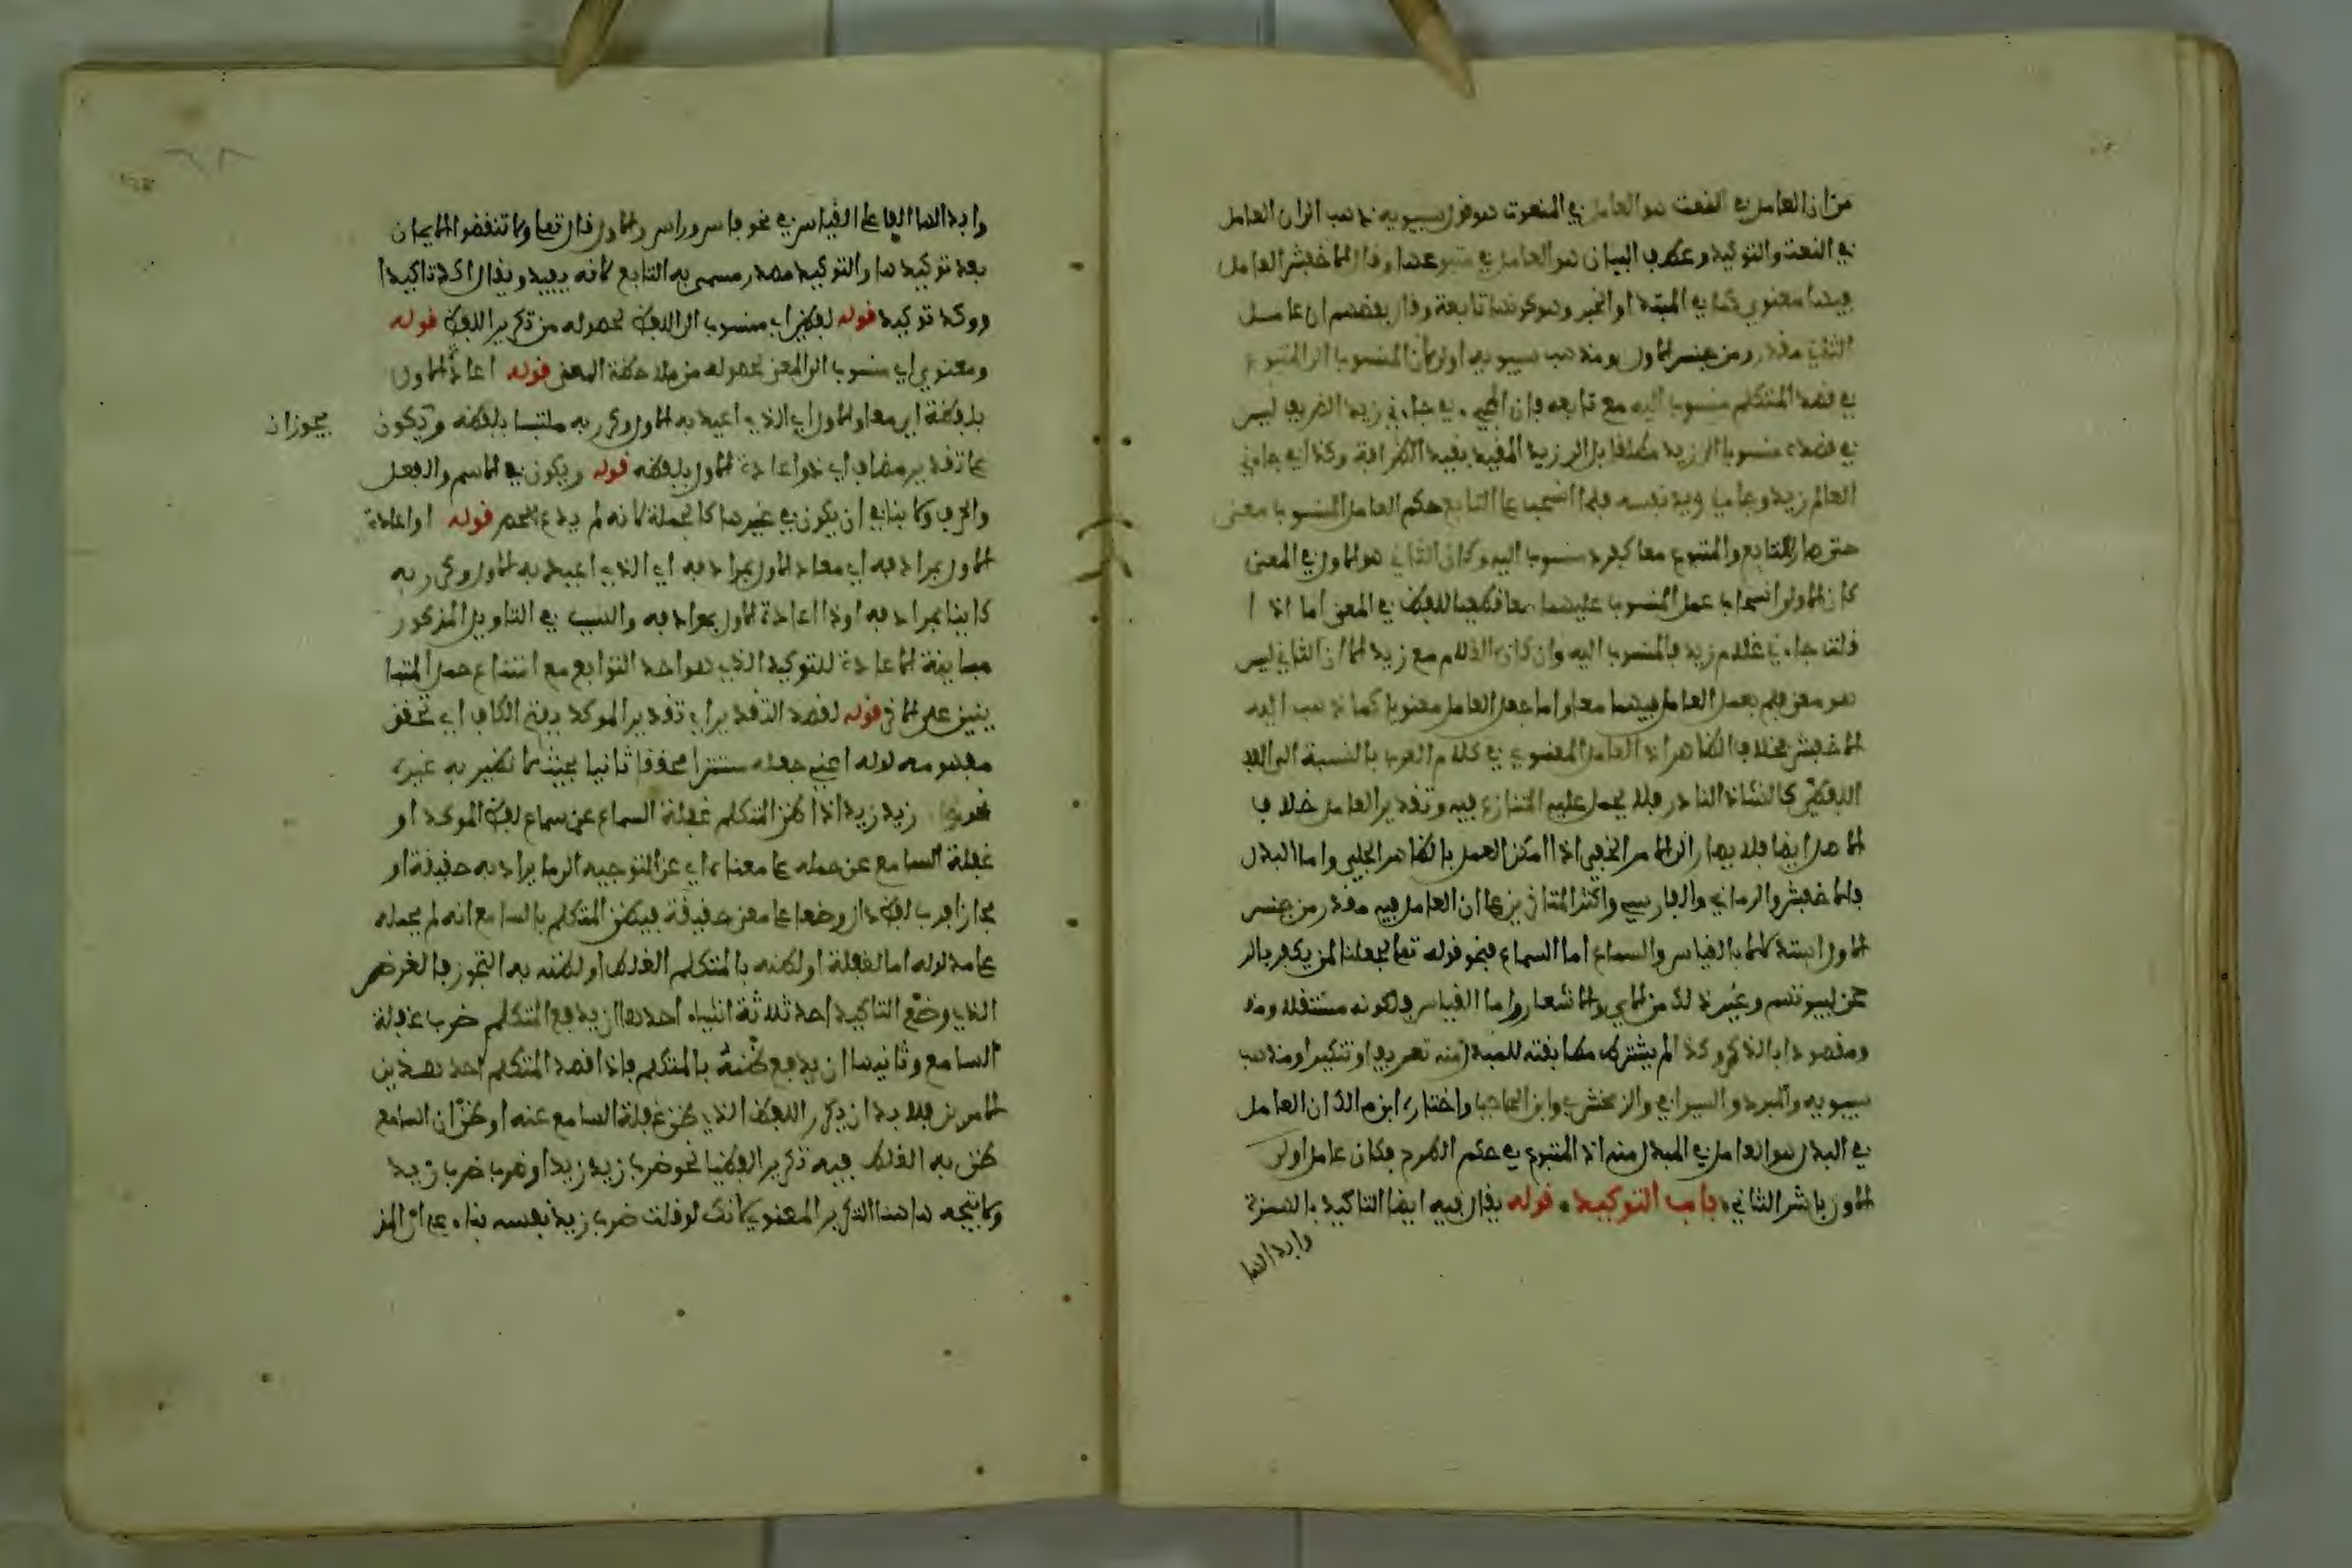 من ان العامل في النعت هو العامل في المنعوت هو قول سيبويه ذهب الى ان العامل
في النعت والتوكيد وعطف البيان هو العامل في متبوعها وقال الاخفش العامل
فيها معنوي كما في المبتدا او الخبر وهو كونها تابعة وقال بعضهم ان عامل
الثاني مقدر من جنس الاول ومذهب سيبويه اولى لان المنسوب الى المتبوع
في قصد المتكلم منسوب اليه مع تابعه فان المجيء في جاءني زيد الظريف ليس
في قصده منسوبا الى زيد مطلقا بل الى زيد المقيد بقيد الظرافة وكذا في جاءني
العالم زيد وجاءني زيد نفسه فلما انسحب على التابع حكم العامل المنسوب معنى
حتى صار التابع والمتبوع معا كمفرد منسوب اليه وكان الثاني هو الاول في المعنى
كان الاولى انسحاب عمل المنسوب عليهما معا تطبيقا للفظ في المعنى اما اذا
قلت جاءني غلام زيد فالمنسوب اليه وان كان الغلام مع زيد الا ان الثاني ليس
هو معنى فلم يعمل العامل فيهما معا واما جعل العامل معنويا كما ذهب اليه
الاخفش فخلاف الظاهر اذ العامل المعنوي في كلام العرب بالنسبة الى
اللفظي كالشاذ النادر فلا يحمل عليه المتنازع فيه وتقدير العامل خلاف
الاصل ايضا فلا يصار الى الامر الخفي اذا امكن العمل بالظاهر الجلي واما البدل
فالاخفش والرماني والفارسي واكثر المتاخرين على ان العامل فيه مقدر من جنس
الاول استدلالا بالقياس والسماع اما السماع فنحو قوله تعلى لجعلنا لمن يكفر بالر
حمن لبيوتهم وغير ذلك من الاي والاشعار واما القياس فلكونه مستقلا ومذ
ومقصودا بالذكر وكذا لم يشترط مطابقته للمبدل منه تعريفا وتنكيرا ومذهب
سيبويه والمبرد والسيرافي والزمخشري وابن الحاجب واختاره ابن مالك ان العامل
في البدل هو العامل في المبدل منه اذ المتبوع في حكم الطرح فكان عامل اولى
الاول باشر الثاني، باب التوكيد، قوله يقال فيه ايضا التاكيد بالهمزة
وابدالها
وابدالها الفا على القياس في نحو فاس وراس والاول قال تعلى ولا تنقضوا الايمان
بعد توكيدها والتوكيد مصدر مسمى به التابع لانه يفيده ويقال اكد تاكيدا
ووكد توكيدا قوله لفظي اي منسوب الى اللفظ لحصوله من تكرير اللفظ قوله
ومعنوي اي منسوب الى المعنى لحصوله من ملاحظة المعنى قوله اعادة الاول
بلفظه اي معاد الاول اي الذي اعيد به الاول وكرر به ملتبسا بلفظه ويكون
يجوز ان
على تقدير مضاف اي ذو اعادة الاول بلفظه قوله ويكون في الاسم والفعل
والحرف ولا ينافي ان يكون في غيرها كالجملة لانه لم يدع الحصر قوله او اعادة
الاول بمرادفه اي معاد الاول بمرادفه اي الذي اعيد به الاول وكرر به
كائنا بمرادفه او ذا اعادة الاول بمرادفه والسبب في التاويل المذكور
مباينة الاعادة للتوكيد الذي هو احد التوابع مع امتناع حمل المتبا
ينين على الاخر قوله لقصد التقرير اي تقرير الموكد بفتح الكاف اي تحقق
مفهومه لوله اعني جعله مستقرا محققا ثانيا بحيث لا يظن به غيره
نحو زيد زيد اذا ظن المتكلم غفلة السامع عن سماع لفظ الموكد او
غفلة السامع عن حمله على معناه اي عن التوجيه الى ما يراد به حقيقة او
مجازا فرب لفظ دال وضعا على معنى حقيقة فيظن المتكلم بالسامع انه لم يحمله
على مدلوله اما لغفلة او لظنه بالمتكلم الغلط او لظنه به التجوز فالغرض
الذي وضع التاكيد احد ثلاثة اشياء احدها ان يدفع المتكلم ضرب غفلة
السامع وثانيها ان يدفع ظنه بالمتكلم فاذا قصد المتكلم احد هذين
الامرين فلا بد ان يكرر اللفظ الذي ظن غفلة السامع عنه او ظن ان السامع
ظن به الغلط فيه تكريرا لفظيا نحو ضرب زيد زيد او ضرب ضرب زيد
ولا يتجه هاهنا التكرير المعنوي لانك لو قلت ضرب زيد نفسه بناء على ان المذ